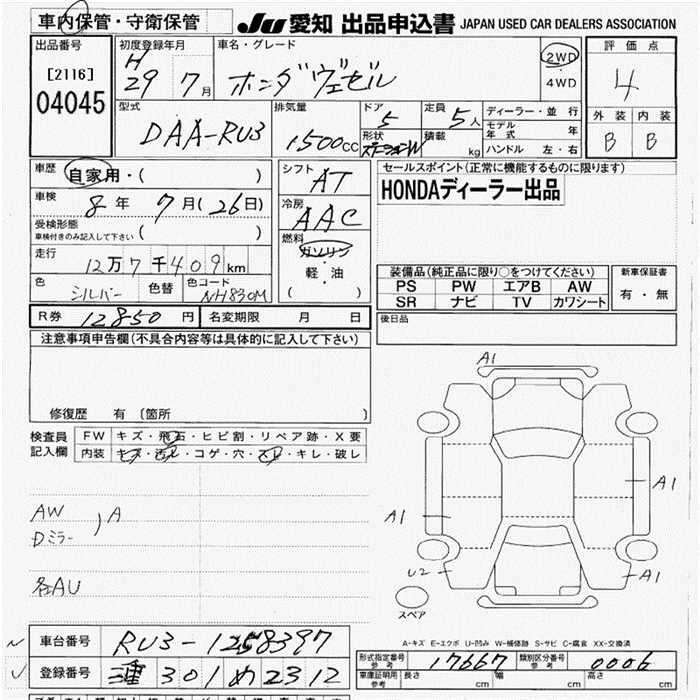 車内保管・守衛保管 JU 愛知 出品申込書 JAPAN USED CAR DEALERS ASSOCIATION
出品番号 初度登録年月 車名・グレード 2WD・4WD 評価点
[2116] H 29 7月 ホンダ ヴェゼル 4
04045 型式 排気量 ドア 定員 ディーラー・並行 外装 内装
DAA-RU3 1500cc 5 5人 モデル年式 年 B B
形状 ステーションW 積載 kg ハンドル 左・右
車歴 自家用・( ) シフト AT セールスポイント(正常に機能するものに限ります)
車検 8年 7月(26日) 冷房 AAC HONDAディーラー出品
受検形態 車検付きのみ記入して下さい ( ) 燃料 ガソリン・軽・油 ( )
走行 12万7千409km 装備品(純正品に限り○をつけてください) 新車保証書
色 シルバー 色替 色コード NH830M PS PW エアB AW 有・無
SR ナビ TV カワシート
R券 12850円 名変期限 月 日 後日品
注意事項申告欄(不具合内容等は具体的に記入して下さい)
修復歴 有 〔箇所 〕
検査員記入欄 FW キズ・飛石・ヒビ割・リペア跡・X要
内装 キズ・汚レ・コゲ・穴・スレ・キレ・破レ
A1
A1
A1
U2
A1
スペア
AW
Dミラー ) A
各AU
A-キズ E-エクボ U-凹み W-補修跡 S-サビ C-腐食 XX-交換済
車台番号 RU3-1258397
登録番号 三重 301 め 2312
形式指定番号 参考 17667 類別区分番号 参考 0006
車庫証明用 参考 長さ cm 幅 cm 高さ cm